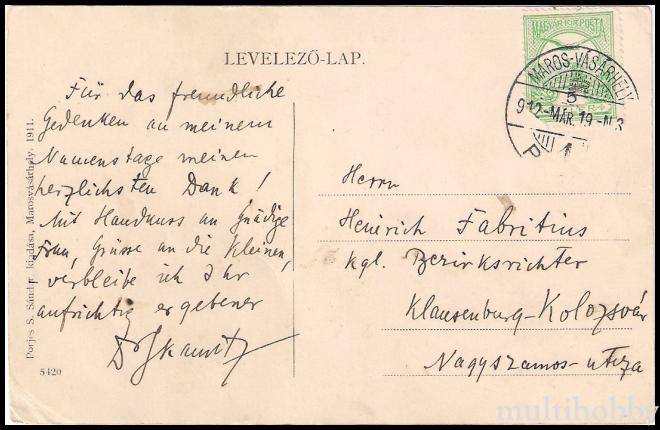 LEVELEZŐ-LAP.
MAGYAR KIR. POSTA
MAROS-VÁSÁRHELY
912-MÁR.19-N3
P
Für das freundliche
Gedenken an meinem
Namenstage meinen
herzlichsten Dank!
Mit Handkuss an Gnädige
Frau, Grüsse an die Kleinen,
verbleibe ich Ihr
aufrichtig ergebener
Herrn
Heinrich Fabritius
kgl. Bezirksrichter
Klausenburg-Kolozsvár
Nagyszamos-utcza
Porjes S. Sándor kiadása, Marosvásárhely. 1911.
5420
multihobby